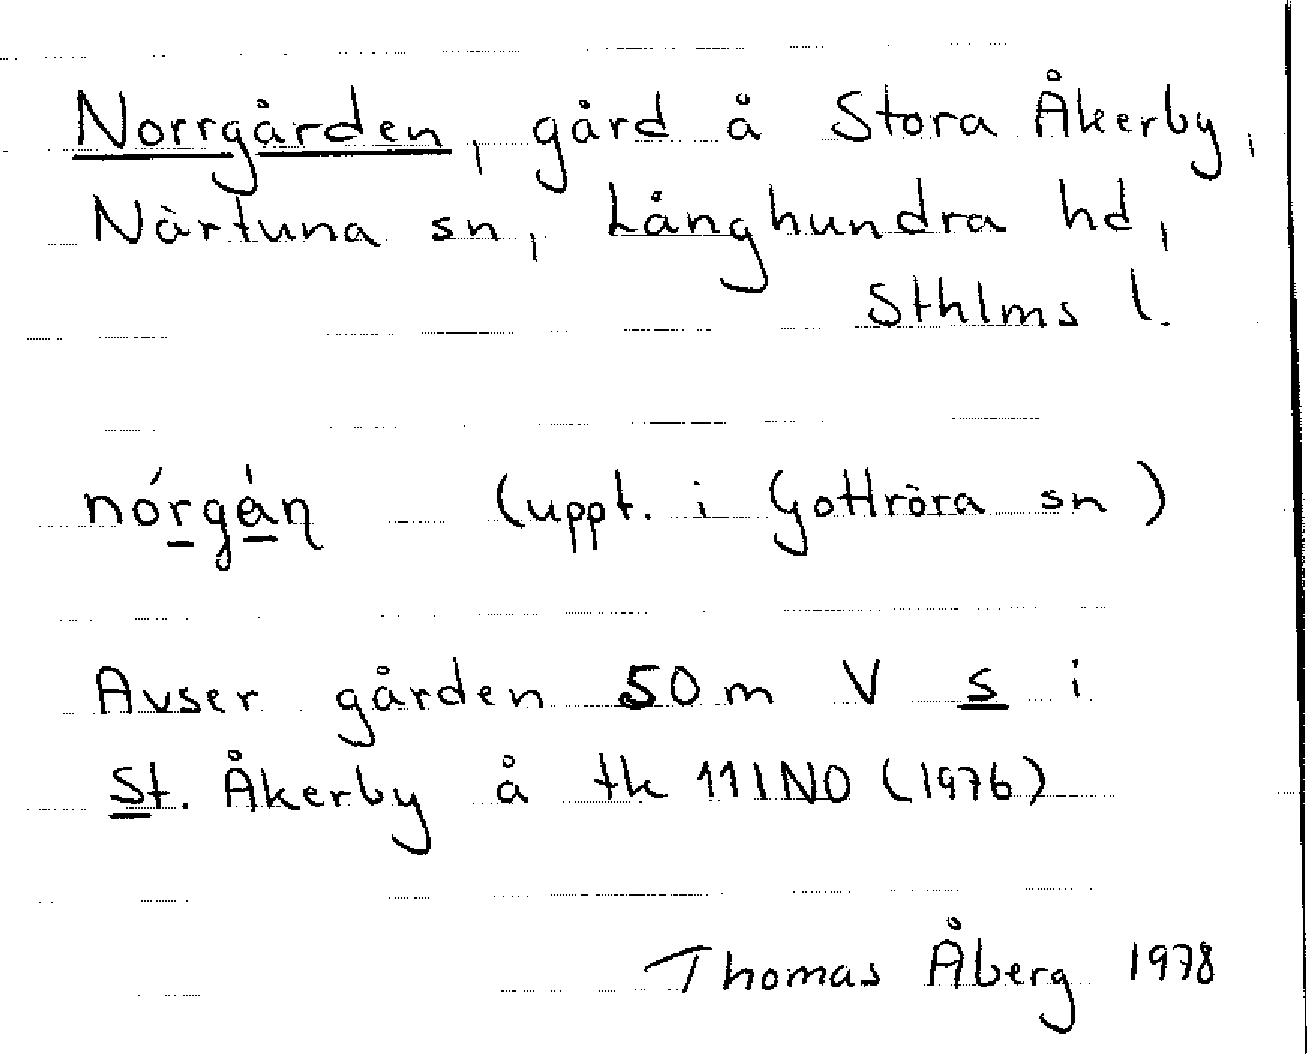 Norrgården, gård å Stora Åkerby,
Närtuna sn, Långhundra hd,
Sthlms l.
nórgán (uppt. i Gottröra sn)
Avser gården 50 m V s i
St. Åkerby å tk 11INO (1976)
Thomas Åberg 1978